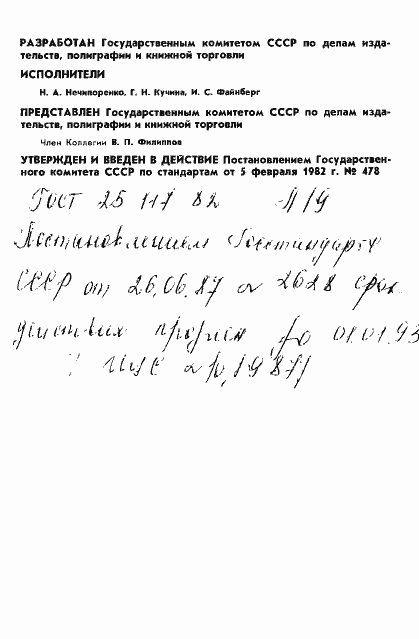 РАЗРАБОТАН Государственным комитетом СССР по делам изда-
тельств, полиграфии и книжной торговли
ИСПОЛНИТЕЛИ
Н. А. Нечипоренко, Г. Н. Кучина, И. С. Файнберг
ПРЕДСТАВЛЕН Государственным комитетом СССР по делам изда-
тельств, полиграфии и книжной торговли
Член Коллегии В. П. Филиппов
УТВЕРЖДЕН И ВВЕДЕН В ДЕЙСТВИЕ Постановлением Государствен-
ного комитета СССР по стандартам от 5 февраля 1982 г. № 478
Гост 25 117 82
Постановлением Госстандарта
СССР от 26.06.87 № 2628 срок
действия продлен до 01.01.93
ИУС №10, 1987